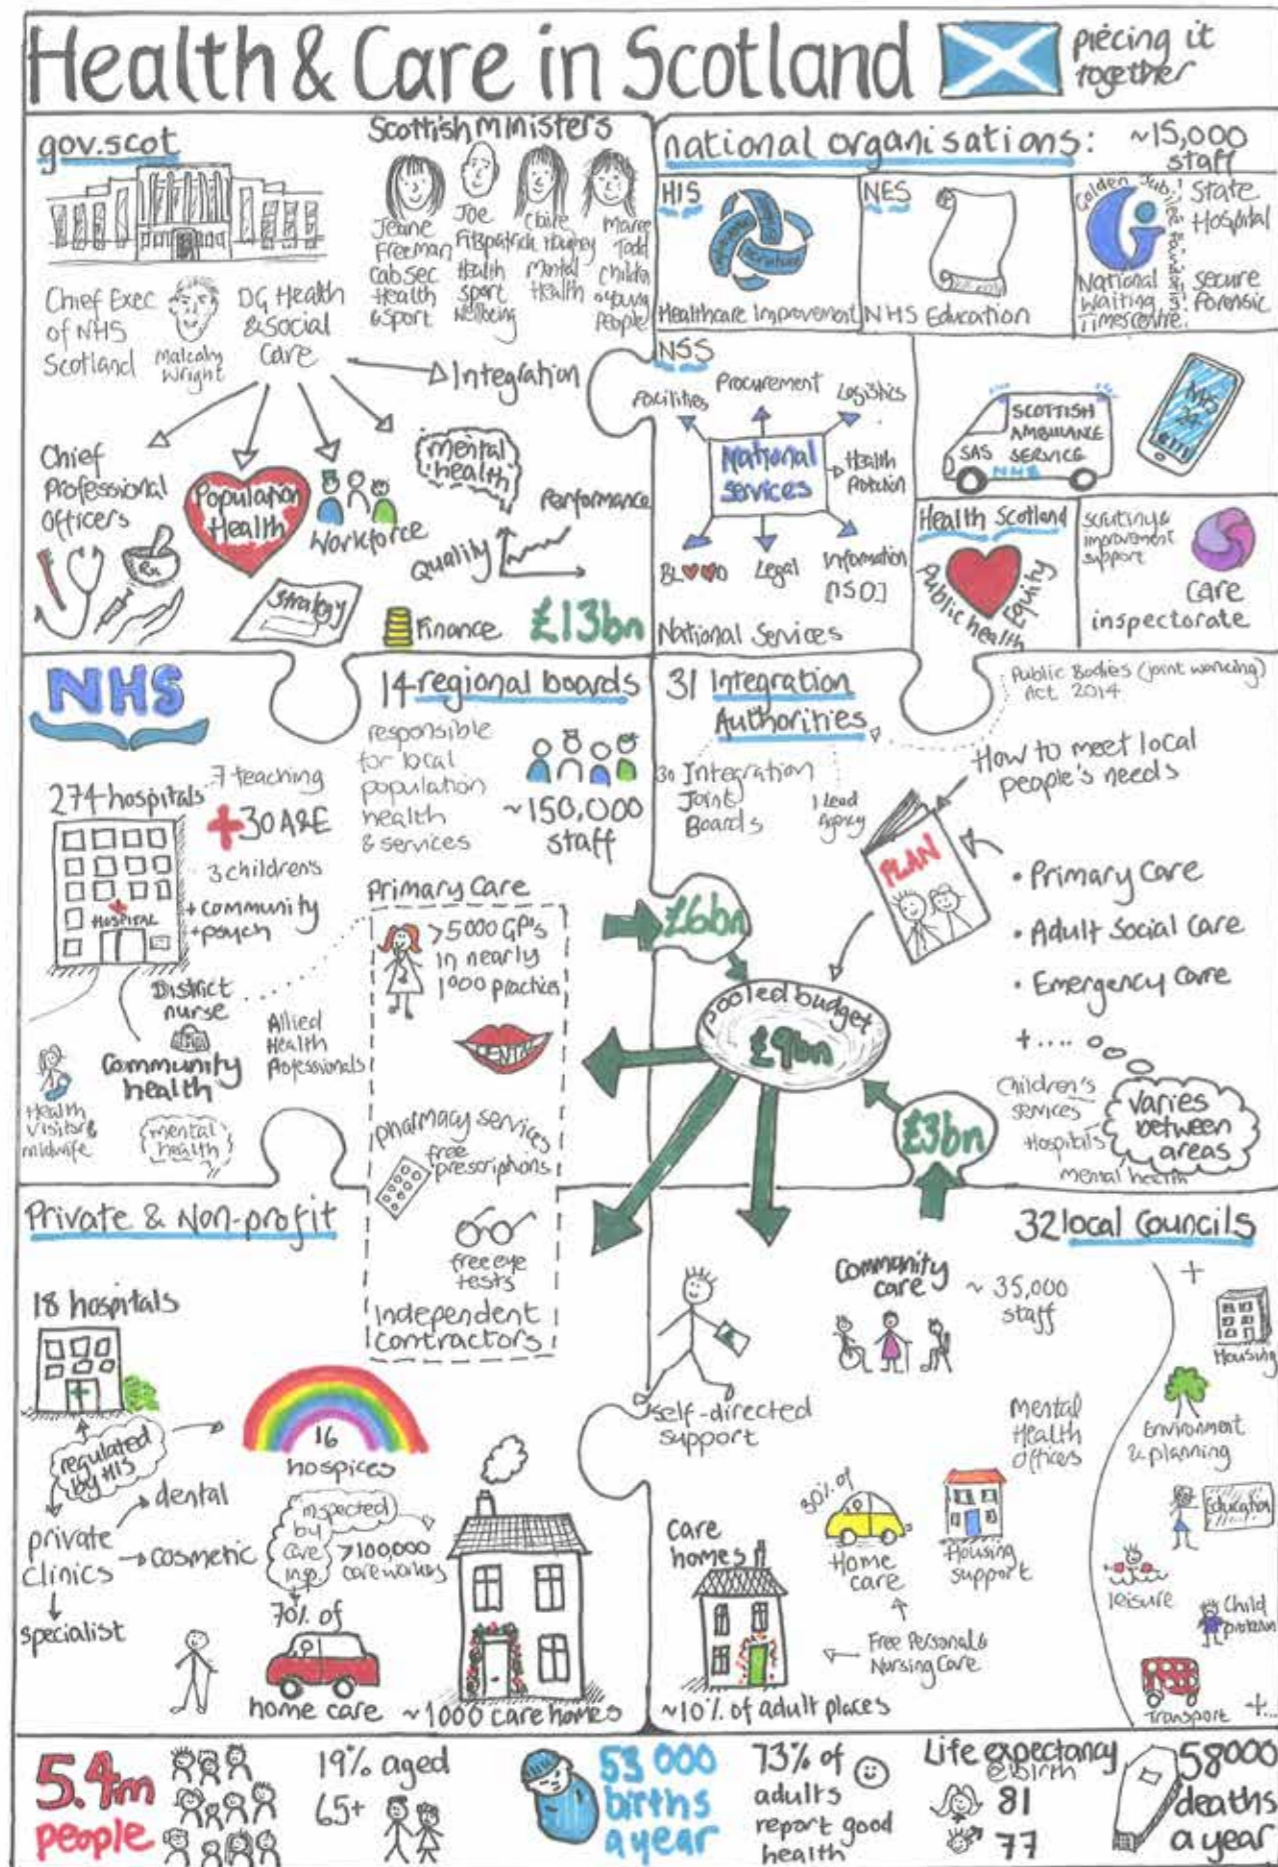 Health & Care in Scotland
piecing it
together
gov.scot
Scottish ministers
Jeane
Freeman
Cab Sec
Health
& Sport
Joe
Fitzpatrick
Health
Sport
Wellbeing
Claire
Haughey
Mental
Health
Maree
Todd
Childn
& Young
People
Chief Exec
of NHS
Scotland
Malcolm
Wright
DG Health
& Social
Care
Integration
Chief
Professional
Officers
Population
Health
Workforce
mental
health
Performance
Quality
Rx
Strategy
Finance
£13bn
national organisations:
~15,000
staff
HIS
Healthcare Improvement
NES
NHS Education
Golden Jubilee
National
Waiting
Times centre
State
Hospital
secure
forensic
NSS
Facilities
Procurement
Logistics
National
Services
Health
Protection
BLOOD
Legal
Information
[ISD]
National Services
SCOTTISH
AMBULANCE
SAS SERVICE
NHS
NHS
24
Health Scotland
Public health
Equity
scrutiny &
improvement
support
care
inspectorate
NHS
14 regional boards
responsible
for local
population
health
& services
~150,000
staff
274 hospitals
7 teaching
+30 A&E
3 children's
+ community
+ psych
HOSPITAL
District
nurse
Community
health
Allied
Health
Professionals
Health
Visitor &
midwife
mental
health
Primary Care
>5000 GP's
in nearly
1000 practices
DENTAL
pharmacy services
free
prescriptions
free eye
tests
Independent
contractors
31 Integration
Authorities
Public Bodies (joint working)
Act 2014
30 Integration
Joint
Boards
1 Lead
Agency
How to meet local
people's needs
PLAN
• Primary Care
• Adult Social Care
• Emergency Care
+....
Children's
services
Hospitals
mental health
varies
between
areas
£6bn
pooled budget
£9bn
£3bn
Private & Non-profit
18 hospitals
regulated
by HIS
16
hospices
private
clinics
dental
cosmetic
specialist
inspected
by
care
insp.
>100,000
care workers
70% of
home care
~1000 care homes
32 local councils
Community
care
~ 35,000
staff
self-directed
support
Mental
Health
Officers
30% of
Home
care
Housing
support
care
homes
Free Personal &
Nursing Care
~10% of adult places
+
Housing
Environment
& planning
Education
leisure
Child
protection
Transport
+...
5.4m
people
19% aged
65+
53 000
births
a year
73% of
adults
report good
health
Life expectancy
@ birth
81
77
58000
deaths
a year